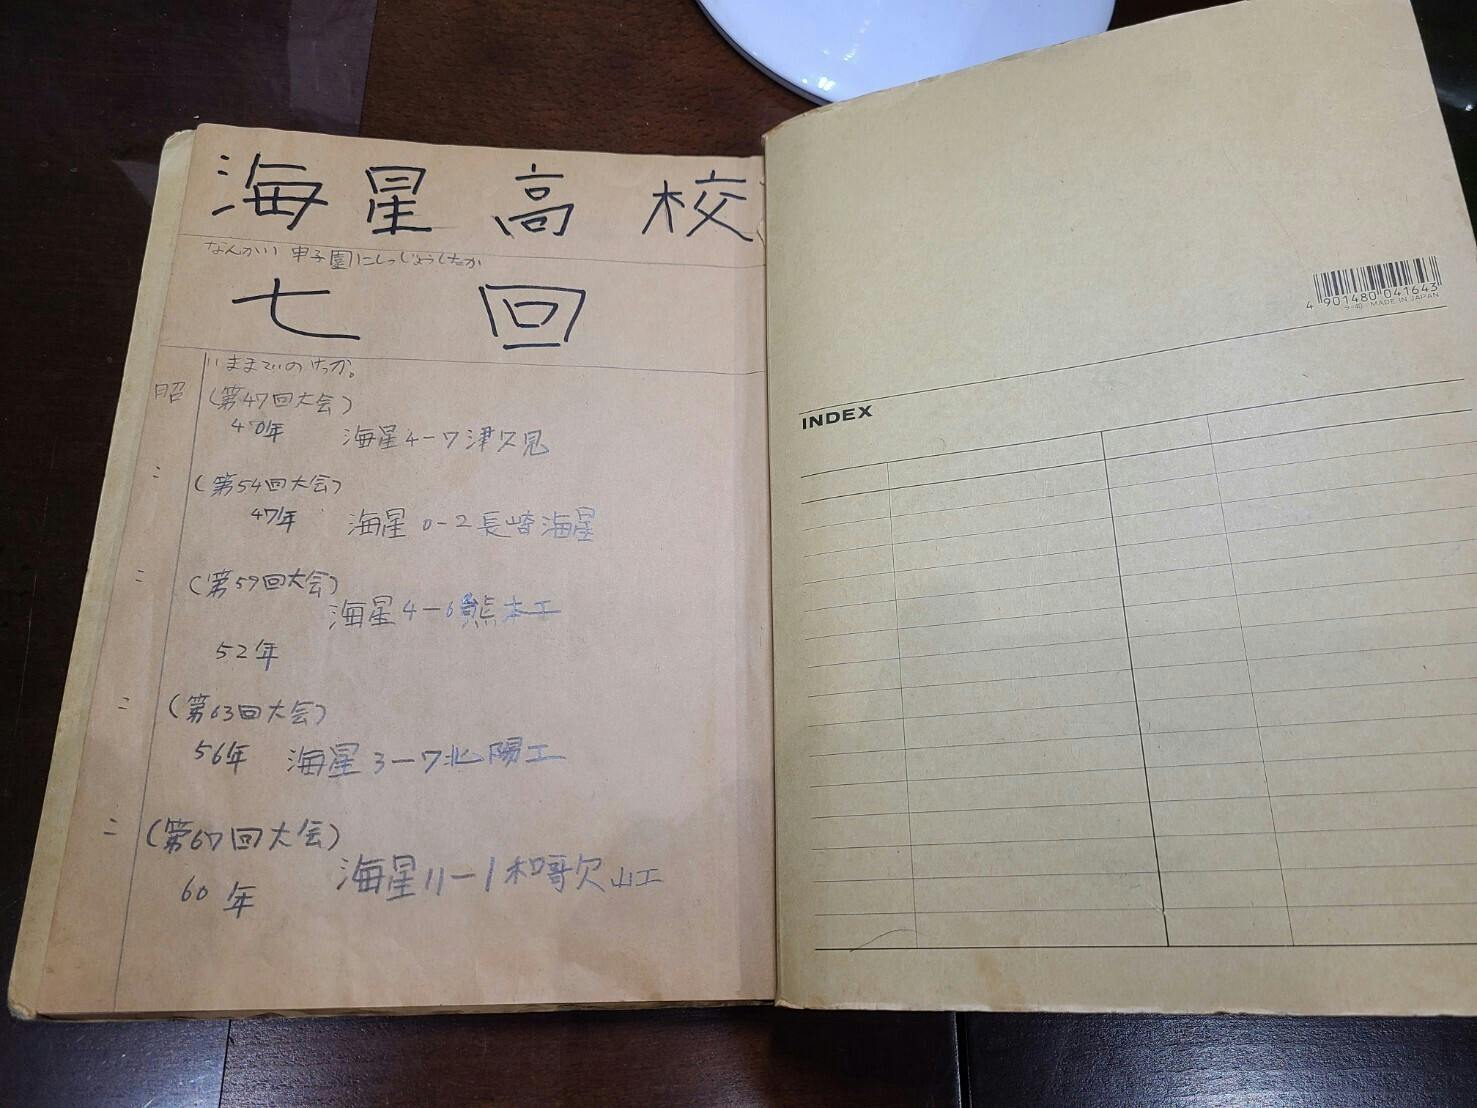 海星高校
なんかい甲子園にしつじょうしたか
七回
いままでのけっか。
昭 (第47回大会)
40年 海星4-7津久見
〃 (第54回大会)
47年 海星0-2長崎海星
〃 (第59回大会)
海星4-6熊本工
52年
〃 (第63回大会)
56年 海星3-7北陽工
〃 (第67回大会)
60年 海星11-1和歌山工
4 901480 041643
ラ-40 MADE IN JAPAN
INDEX